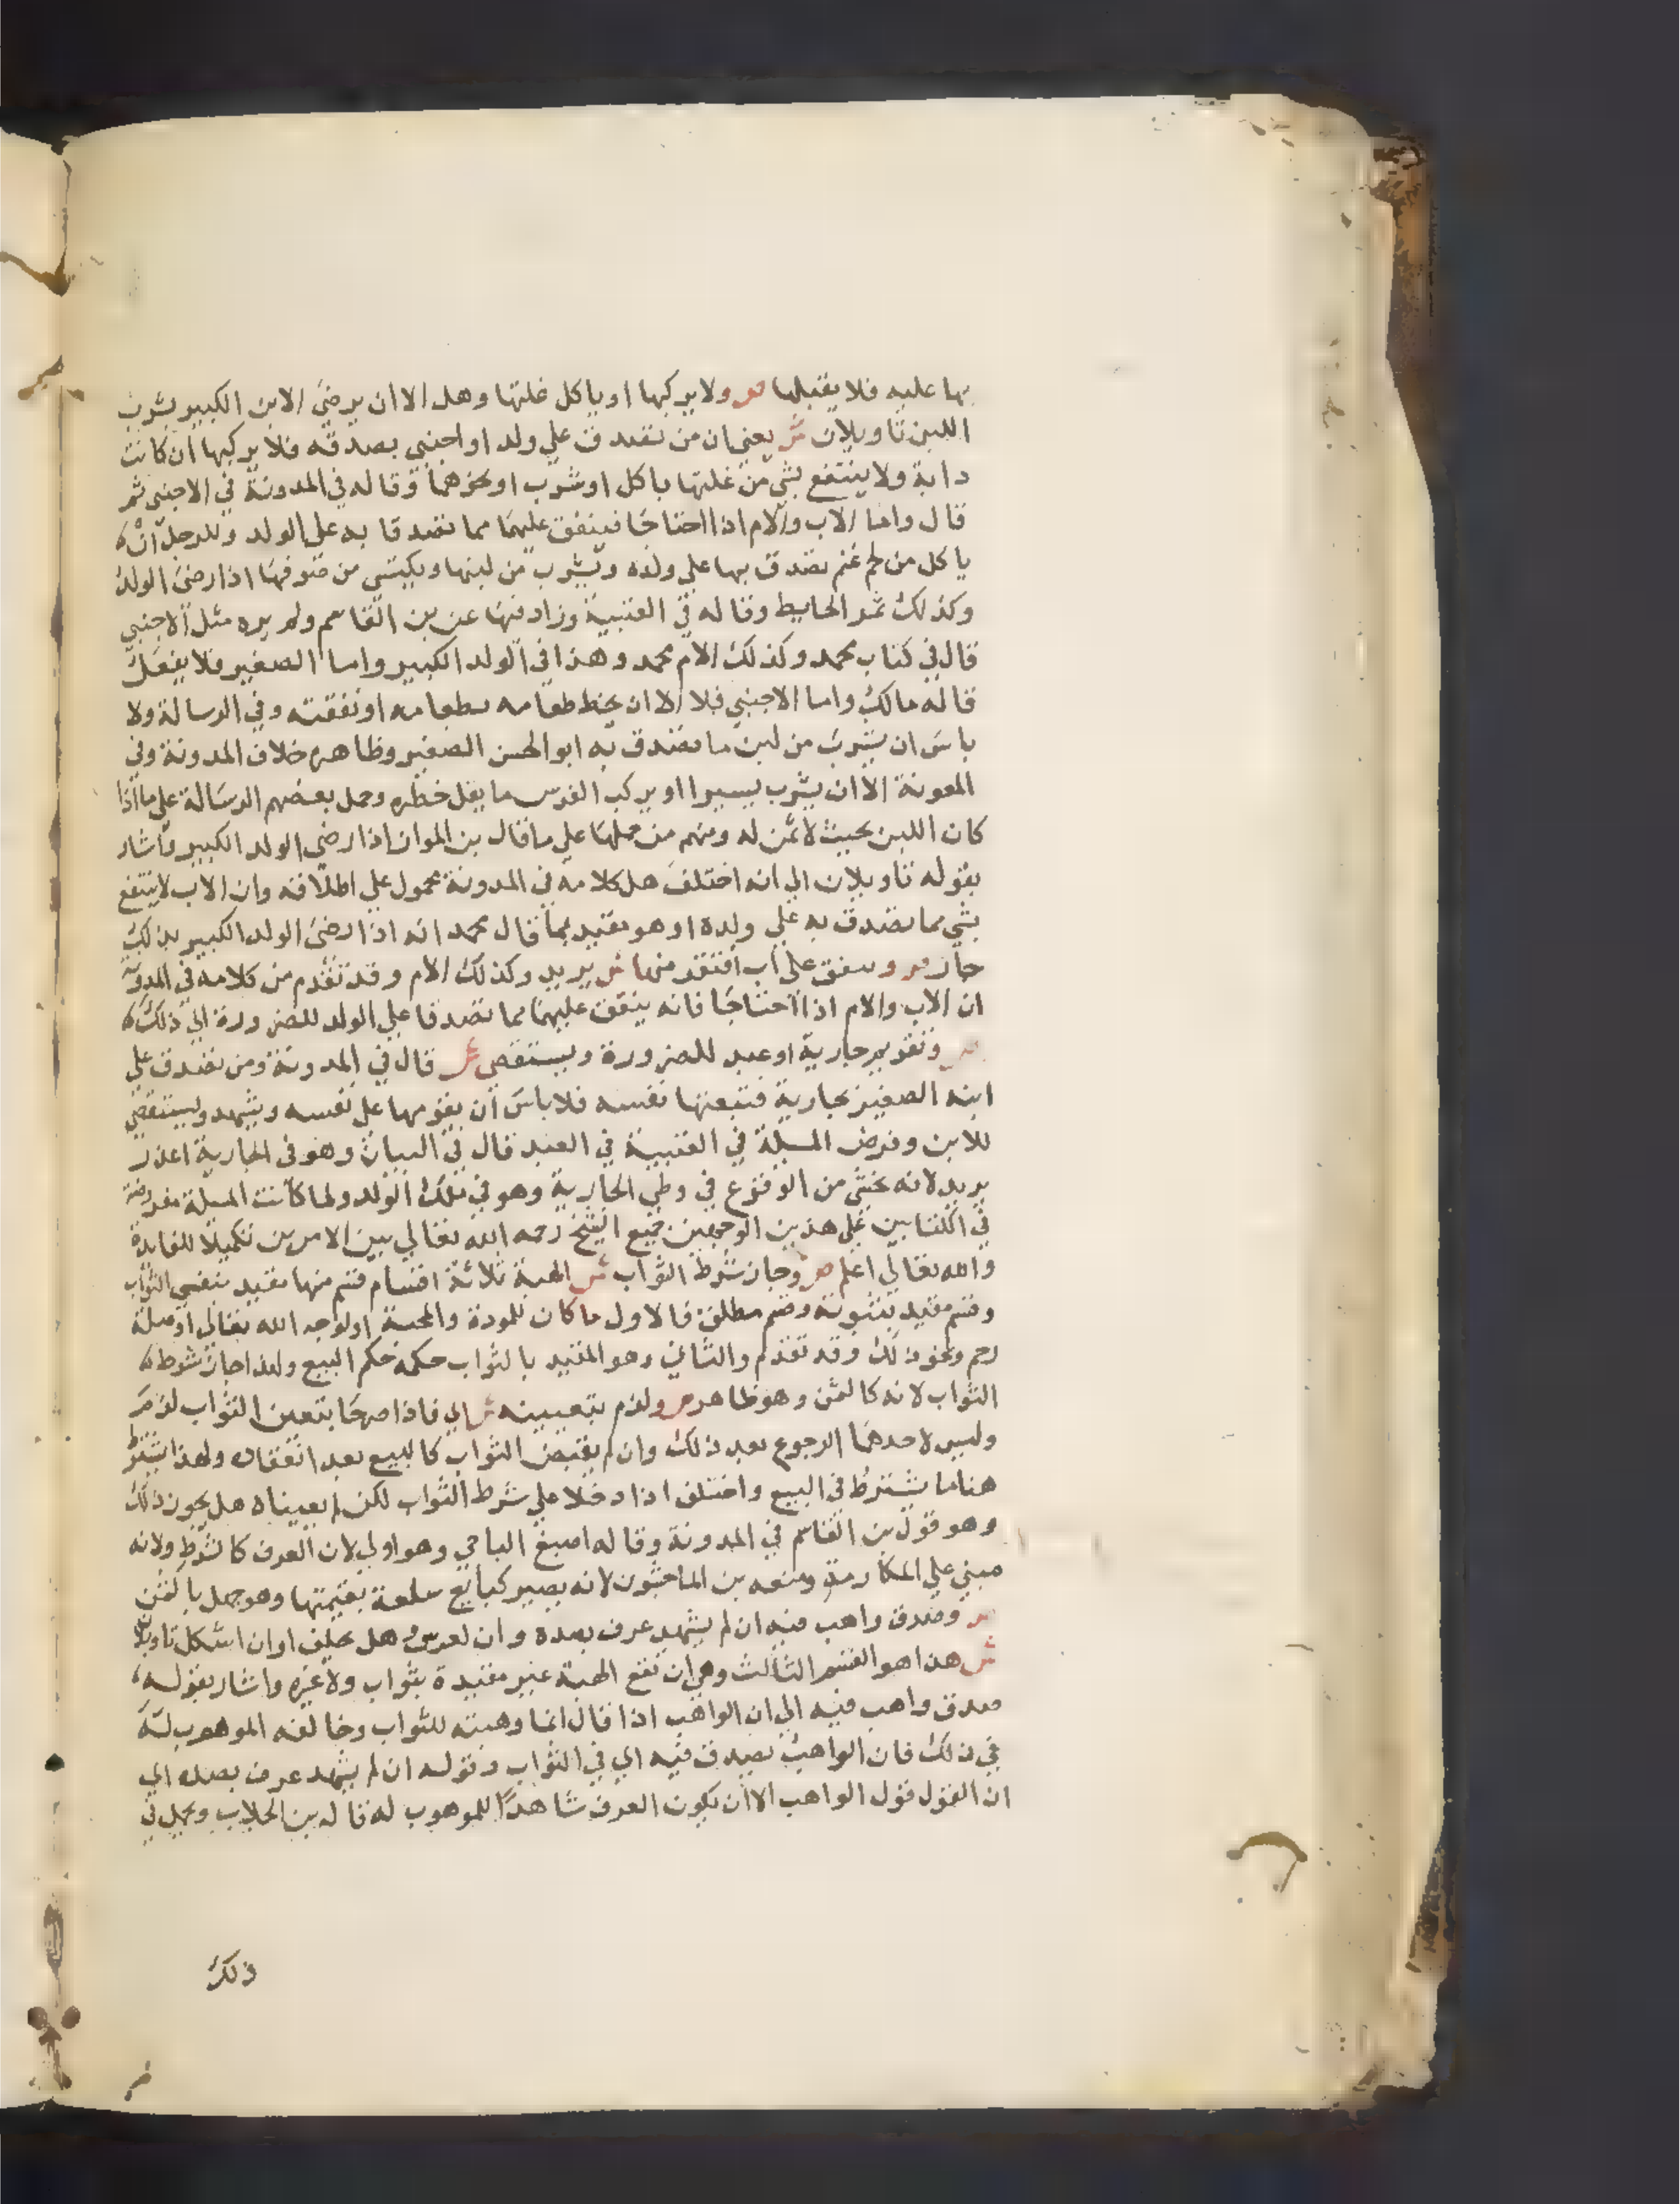 بها عليه فلا يقبلها ص ولا يركبها او ياكل غلتها وهل الا ان يرضي الابن الكبير بشرب
اللبن تاويلان ش يعني ان من تصدق علي ولد او اجنبي بصدقه فلا يركبها ان كانت
دابة ولا ينتفع بشي من غلتها باكل او شرب او نحوهما وقاله في المدونة في الاجنبي ثم
قال واما الاب والام اذا احتاجا فينفق عليهما مما تصدقا به علي الولد وللرجل ان
ياكل من لحم غنم تصدق بها علي ولده ويشرب من لبنها ويكتسي من صوفها اذا رضي الولد
وكذلك ثمر الحايط وقاله في العتبية وزاد فيها عن بن القاسم ولم يره مثل الاجنبي
قال في كتاب محمد وكذلك الام محمد وهذا في الولد الكبير واما الصغير فلا يفعل
قاله مالك واما الاجنبي فلا الا ان يخلط طعامه بطعامه او نفقته وفي الرسالة ولا
باس ان يشرب من لبن ما تصدق به ابو الحسن الصغير وظاهره خلاف المدونة وفي
المعونة الا ان يشرب يسيرا او يركب الفرس ما يقل خطره وحمل بعضهم الرسالة علي ما اذا
كان اللبن بحيث لا ثمن له ومنهم من حملها علي ما قال بن المواز اذا رضي الولد الكبير واشار
بقوله تاويلان الي انه اختلف هل كلامه في المدونة محمول علي اطلاقه وان الاب لا ينتفع
بشي مما تصدق به علي ولده او هو مقيد بما قال محمد انه اذا رضي الولد الكبير بذلك
جاز ص وينفق علي اب افتقر منها ش يريد وكذلك الام وقد تقدم من كلامه في المدونة
ان الاب والام اذا احتاجا فانه ينفق عليهما مما تصدقا علي الولد للضرورة الي ذلك
ص وتقويم جارية او عبد للضرورة ويستقصي ش قال في المدونة ومن تصدق علي
ابنه الصغير بجارية فتبعتها نفسه فلا باس ان يقومها علي نفسه ويشهد ويستقصي
للابن وفرض المسلة في العتبية في العبد قال في البيان وهو في الجارية اعذر
يريد لانه يخشي من الوقوع في وطي الجارية وهو في ملك الولد ولما كانت المسلة مفروضة
في الكتابين علي هذين الوجهين جمع الشيخ رحمه الله تعالي بين الامرين تكميلا للفايدة
والله تعالي اعلم ص وجاز شرط الثواب ش الهبة ثلاثة اقسام قسم منها مقيد بنفي الثواب
وقسم مقيد بثبوته وقسم مطلق فالاول ما كان للمودة والمحبة او لوجه الله تعالي او صلة
رحم ونحو ذلك وقد تقدم والثاني وهو المقيد بالثواب حكمه حكم البيع ولهذا جاز شرط
الثواب لانه كالثمن وهو ظاهر ص ولزم بتعيينه ش اي فاذا صرحا بتعين الثواب لزم
وليس لاحدهما الرجوع بعد ذلك وان لم يقبض الثواب كالبيع بعد انعقاده ولهذا يشترط
هنا ما يشترط في البيع واختلف اذا دخلا علي شرط الثواب لكن لم يعيناه هل يجوز ذلك
وهو قول بن القاسم في المدونة وقاله اصبغ الباجي وهو اولي لان العرف كالشرط ولانه
مبني علي المكارمة ومنعه بن الماجشون لانه يصير كبايع سلعة بقيمتها وهو جهل بالثمن
ص وصدق واهب فيه ان لم يشهد عرف بضده وان لعرس وهل يحلف او ان اشكل تاويلان
ش هذا هو القسم الثالث وهي ان تقع الهبة غير مقيدة بثواب ولا غيره واشار بقوله
صدق واهب فيه الي ان الواهب اذا قال انما وهبته للثواب وخالفه الموهوب له
في ذلك فان الواهب يصدق فيه اي في الثواب وقوله ان لم يشهد عرف بضده اي
ان القول قول الواهب الا ان يكون العرف شاهدا للموهوب له قاله بن الجلاب ويحمل في
ذلك